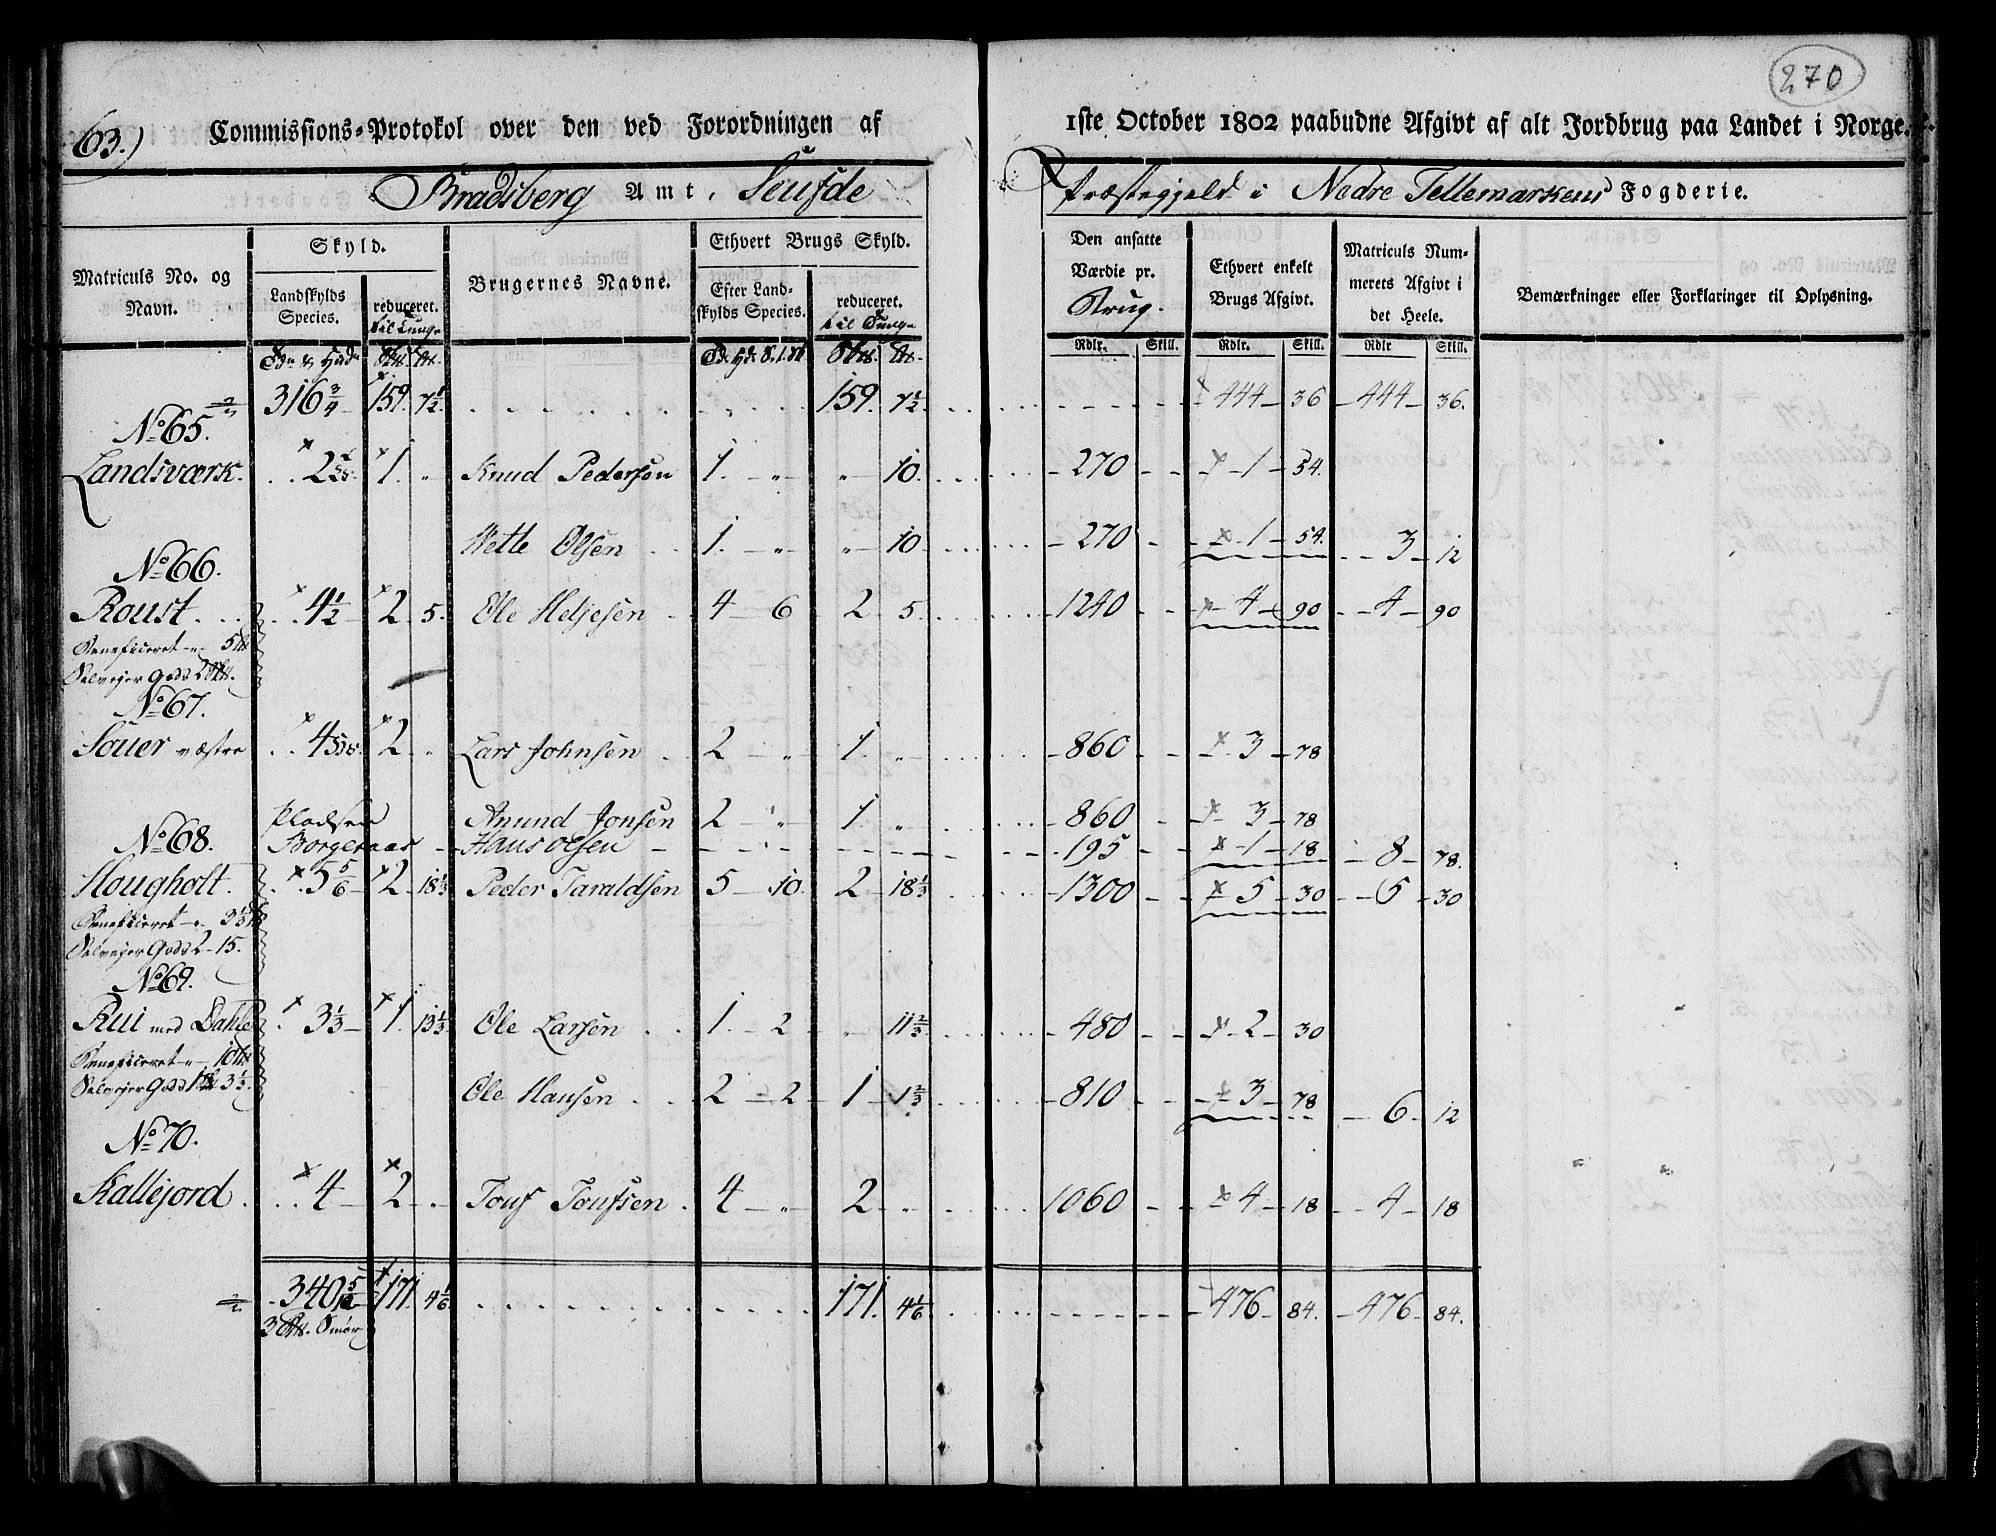 270
63.) Commissions-Protokol over den ved Forordningen af 1ste October 1802 paabudne Afgivt af alt Jordbrug paa Landet i Norge.
Bradsberg Amt, Seufde Præstegjeld i Nedre Tellemarkens Fogderie.
Matriculs No. og Navn. Skyld. Landskylds Species. reduceret. til Tunge Brugernes Navne. Ethvert Brugs Skyld. Efter Landskylds Species. reduceret. til Tunge Den ansatte Værdie pr. Brug. Ethvert enkelt Brugs Afgivt. Matriculs Nummerets Afgivt i det Heele. Bemærkninger eller Forklaringer til Oplysning.
Rdlr. Skill. Rdlr. Skill. Rdlr Skill.
316 3/4 159. 7 1/2 159. 7 1/2 444 36 444 36.
No 65.
Landsværk. 2 1. " Knud Pedersen 1. " " 10. 270 1 54.
Wette Olsen 1. " " 10 270 1 54. 3 12
No 66.
Roust 4 1/2 2 5. Ole Heljesen 4 6 2 5. 1240 4 90 4 90
Beneficeret " 5
Selvejer Gods 2
No 67.
Souer væstre 4 2 " Lars Johnsen 2 " 1. " 860 3 78
Anund Jonsen 2 " 1. " 860 3 78
Pladsen Borgeraas Hans Olsen 195 1 18 8 78.
No 68.
Hougholt. 5 5/6 2 18 1/3 Peder Taraldsen 5 10. 2 18 1/3 1300 5 30 5 30
Beneficeret " 3 1/3
Selvejer Gods 2 15.
No 69.
Rui med Dahle 3 1/3 1. 13 1/3 Ole Larsen 1. 2 " 11 2/3 480 2 30
Beneficeret " 10
Selvejer Gods 1 3 1/3.
Ole Hansen 2 2 1 1 2/3 810 3 78 6 12
No 70.
Kallejord 4 2 " Touf Toufsen 4 " 2 " 1060 4 18 4 18
340 171. 4 1/6 171. 4 1/6 476 84. 476 84.
3 Smør